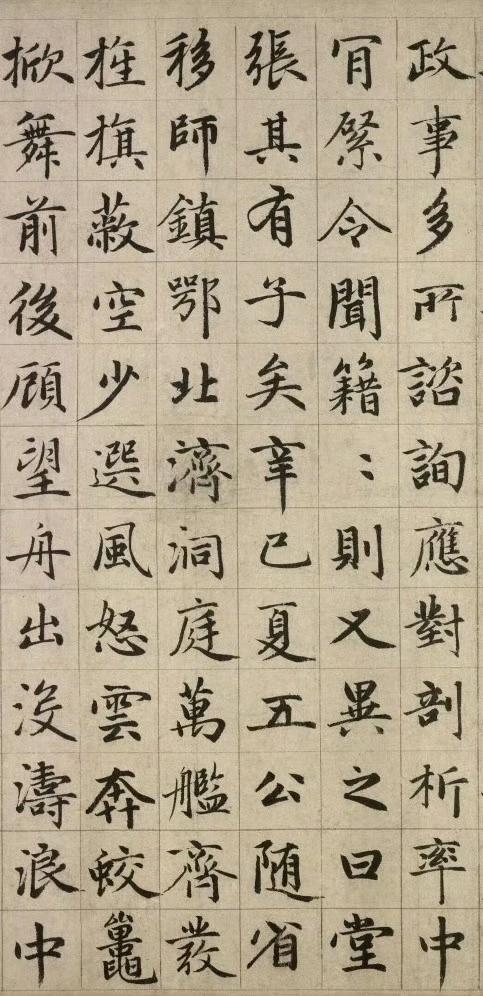 政事多所諮詢應對剖析率中
肎綮令聞籍〻則又異之曰堂
張其有子矣辛巳夏五公随省
移師鎮鄂北濟洞庭萬艦齊發
旌旗蔽空少選風怒雲奔蛟鼉
掀舞前後顧望舟出没濤浪中